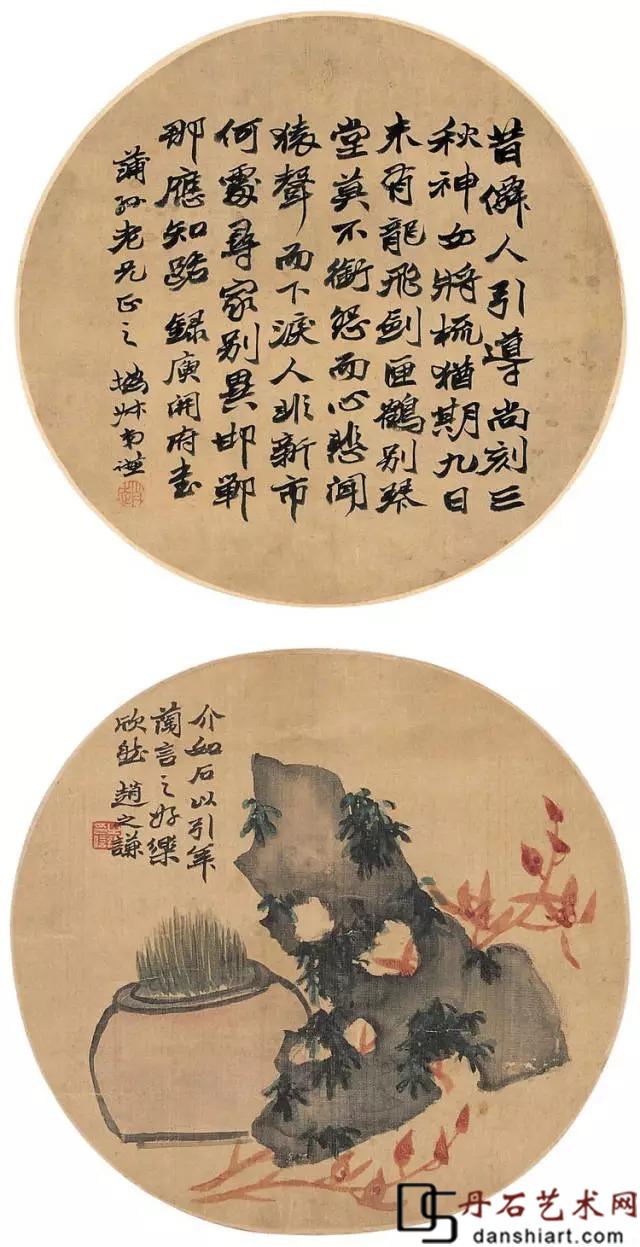 昔僊人引導尚刻三
秋神女將梳猶期九日
未有龍飛劍匣鶴別琴
堂莫不銜怨而心悲聞
猿聲而下淚人非新市
何處尋家別異邯鄲
那應知路 錄庾開府書
蒲孫老兄正之 撝叔弟謙
介如石以引年
蘭言之好樂
欣然 趙之謙
丹石艺术网
danshiart.com